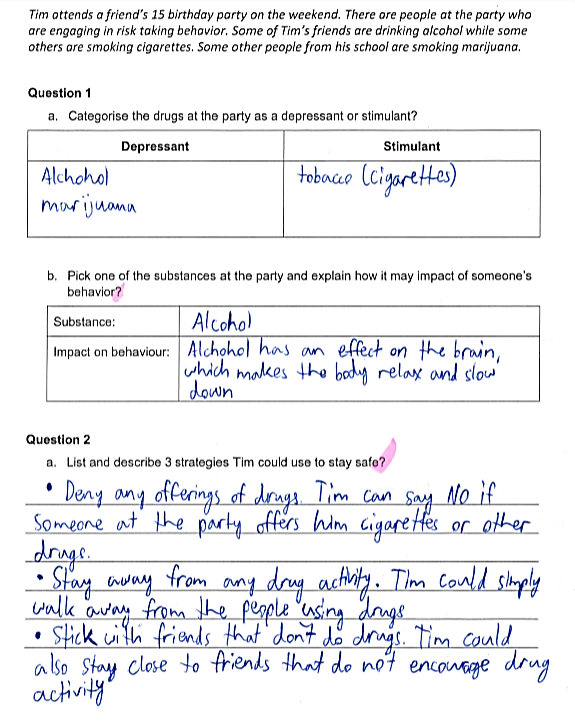 Tim attends a friend's 15 birthday party on the weekend. There are people at the party who
are engaging in risk taking behavior. Some of Tim's friends are drinking alcohol while some
others are smoking cigarettes. Some other people from his school are smoking marijuana.
Question 1
a. Categorise the drugs at the party as a depressant or stimulant?
Depressant Stimulant
Alchohol tobacco (cigarettes)
marijuana
b. Pick one of the substances at the party and explain how it may impact of someone's
behavior?
Substance: Alcohol
Impact on behaviour: Alchohol has an effect on the brain,
which makes the body relax and slow
down
Question 2
a. List and describe 3 strategies Tim could use to stay safe?
• Deny any offerings of drugs. Tim can say No if
Someone at the party offers him cigarettes or other
drugs.
• Stay away from any drug activity. Tim could simply
walk away from the people using drugs
• Stick with friends that don't do drugs. Tim could
also stay close to friends that do not encourage drug
activity